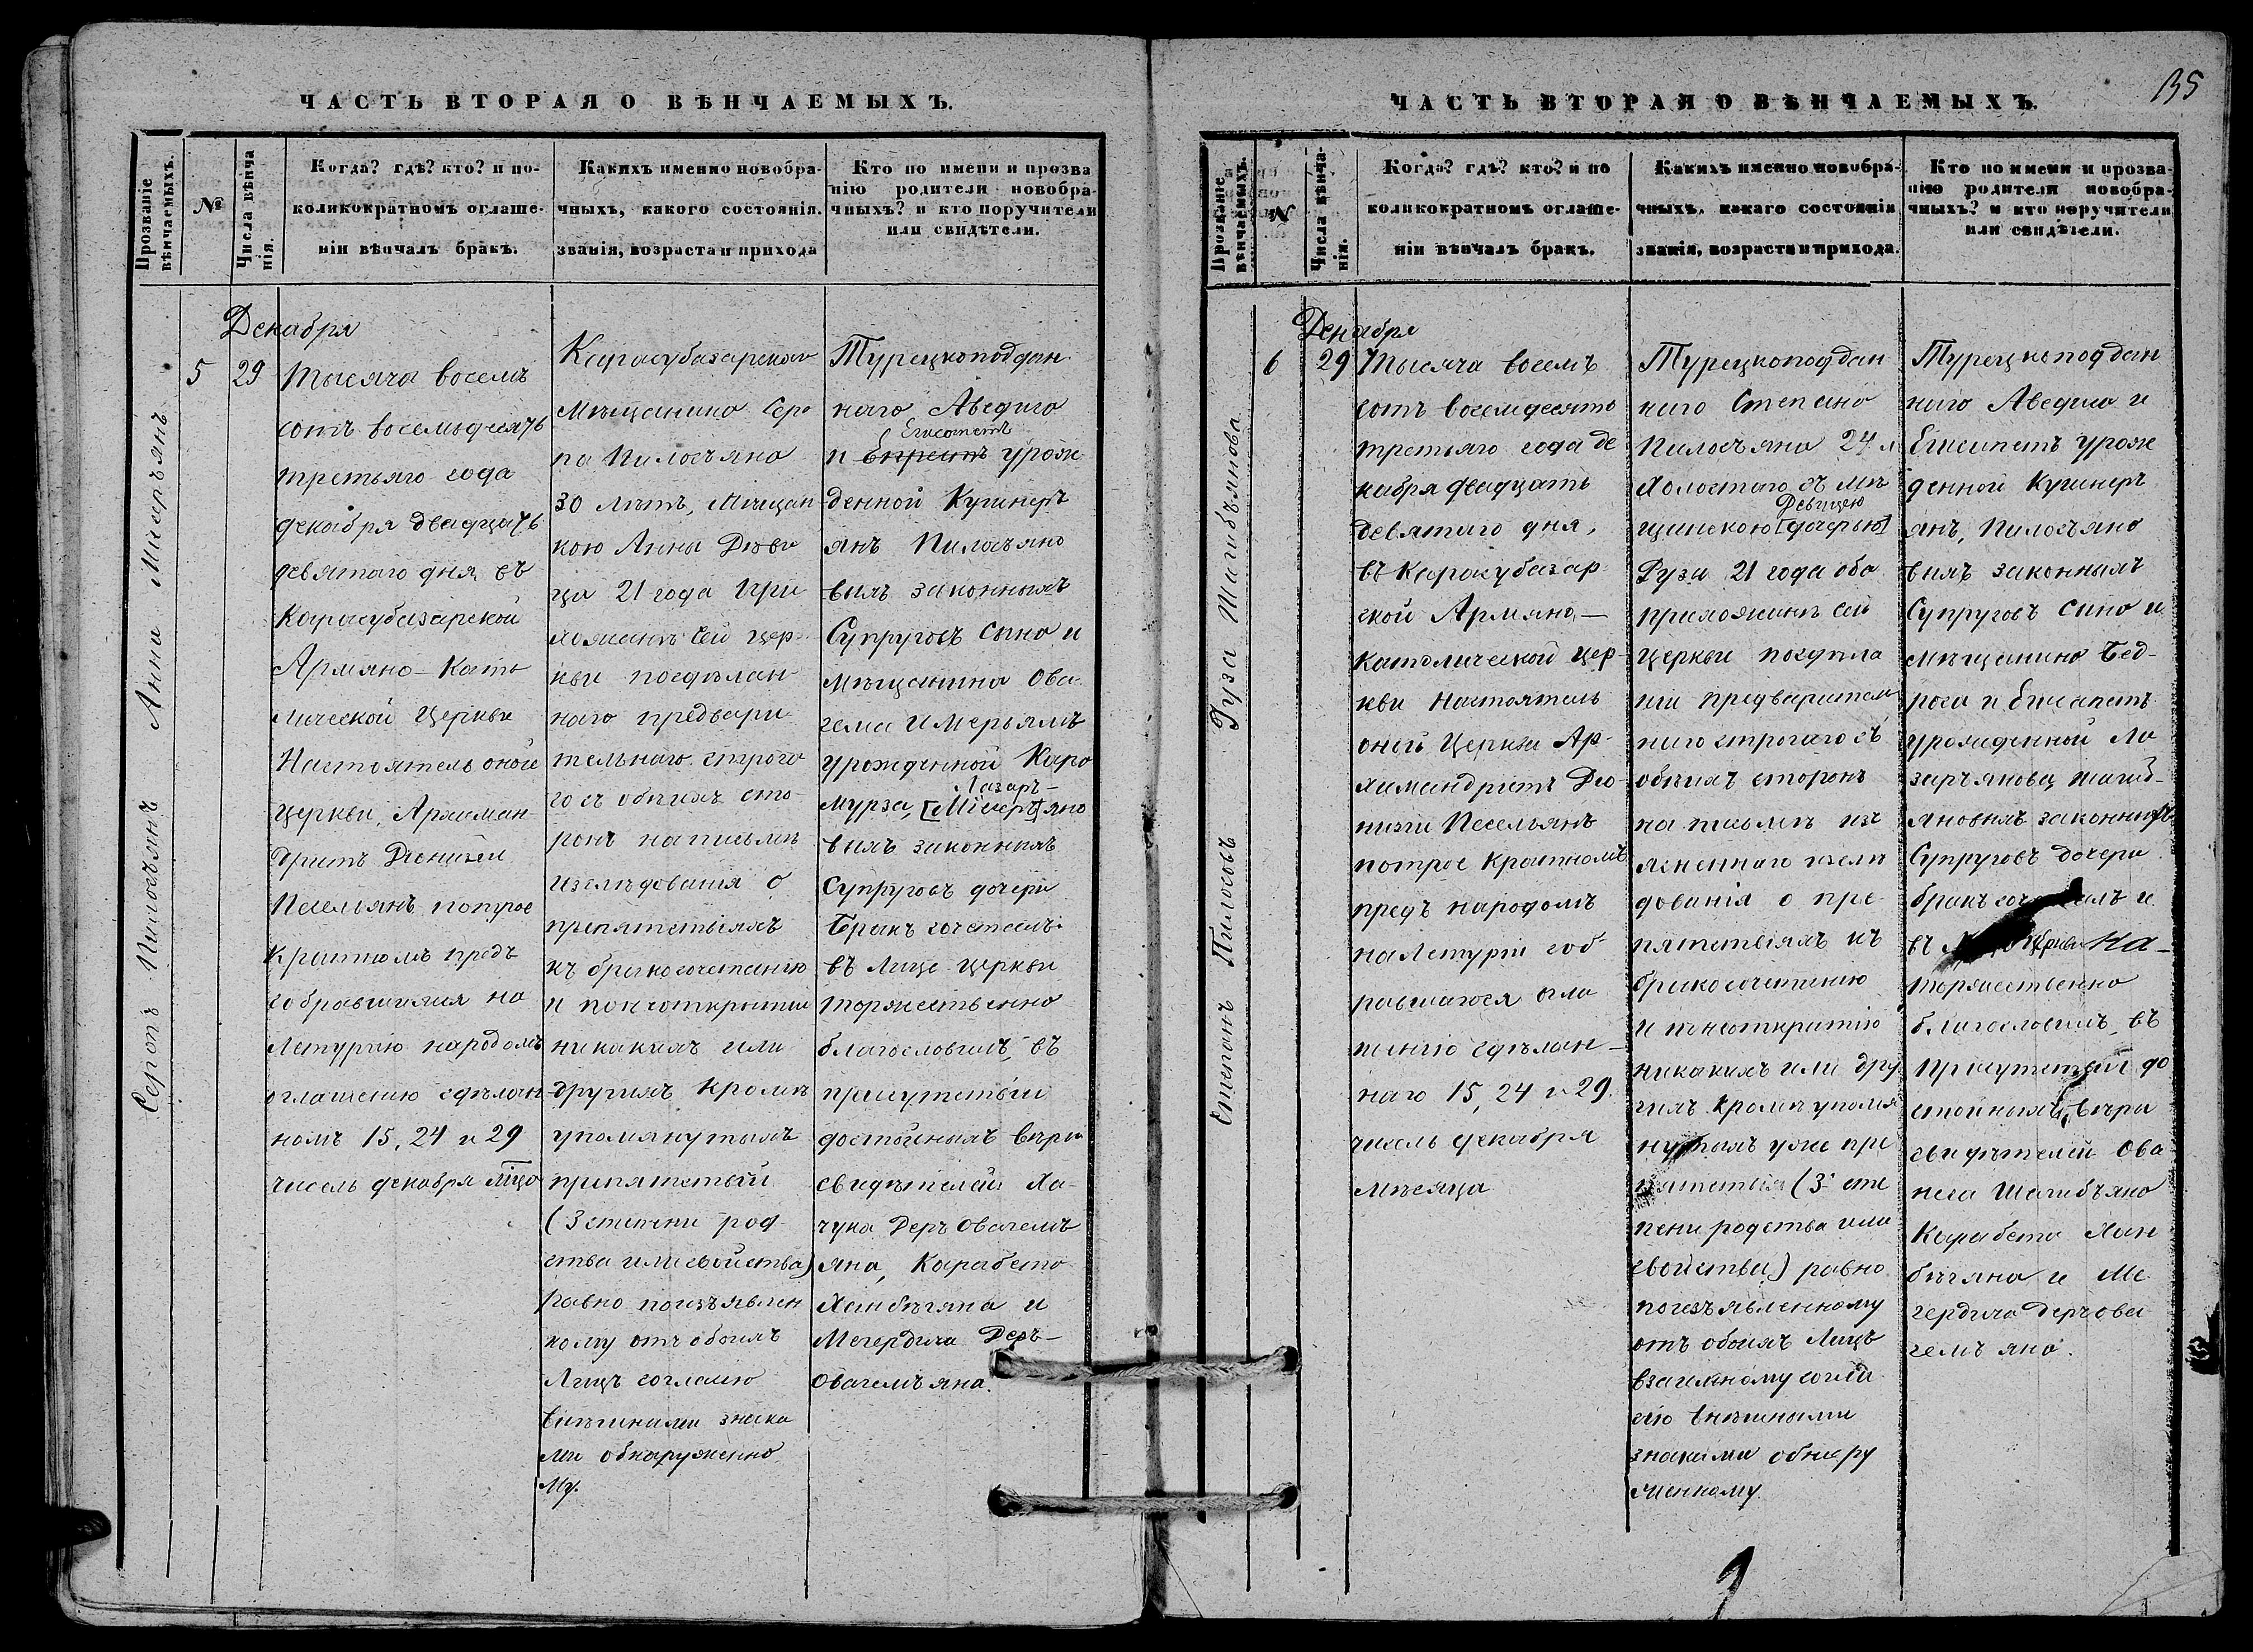 ЧАСТЬ ВТОРАЯ О ВѢНЧАЕМЫХЪ.
Прозваніе
вѣнчаемыхъ.
№
Числа вѣнча
нія.
Когда? гдѣ? кто? и по-
коликократномъ оглаше-
ніи вѣнчалъ бракъ.
Какихъ именно новобра-
чныхъ, какого состоянія.
званія, возраста и прихода
Кто по имени и прозва
нію родители новобра-
чныхъ? и кто поручители
или свидѣтели.
Серопъ Пилосъянъ Анна
5
Декабря
29
Тысяча восемь
сотъ восемьдесятъ
третьяго года
декабря двадцать
девятаго дня въ
Карасубазарской
Армяно-Като
лической Церкви
Настоятель оной
церкви, Архиман
дритъ Дионизiй
по трое
кратномъ предъ
собравшимся на
Летургію народомъ
оглашению сдѣлан
номъ 15, 24 и 29
чиселъ декабря мца
Карасубазарскаго
Мѣщанина Серо
па Пилосъяна
30 лѣтъ, Мѣщан
кою Анна Дѣви
ца 21 года При
хожанъ сей цер-
кви посдѣлан
наго предвари
тельнаго строга
го съ обѣихъ сто-
ронъ на письмѣ
изслѣдованія о
препятствіяхъ
къ бракосочетанію
и понеоткрытии
никакихъ или
другихъ кромѣ
упомянутыхъ
припятствій
(3 степени род-
ства или свойства)
равно поизъявлен
ному отъ обоихъ
Лицъ согласію
внѣшними знака
ми обнаруженно
му.
Турецкоподдан
наго Аведика
Егисапетъ
и урож
денной Кушнеръ
янъ Пилосъяно
выхъ законныхъ
Супруговъ сына и
мѣщанина Ова
гема и Мерьямъ
урожденной Каро
Лазаръ-
мурза, [ ] яно
выхъ законныхъ
Супруговъ дочери
Бракъ сочеталъ
въ Лице церкви
торжественно
благословилъ, въ
присутствіи
достойныхъ вѣры
свидѣтелей Ха-
чука Деръ Овагемъ
яна, Карабета
Ханбѣгяна и
Мегердича Деръ-
Овагемъяна.
135
ЧАСТЬ ВТОРАЯ О ВѢНЧАЕМЫХЪ.
Прозваніе
вѣнчаемыхъ.
№
Числа вѣнча-
нія.
Когда? гдѣ? кто? и по
коликократномъ оглаше-
ніи вѣнчалъ бракъ.
Какихъ именно новобра-
чныхъ, какаго состоянія
званія, возраста и прихода.
Кто по имени и прозва-
нію родители новобра-
чныхъ? и кто поручители
или свидѣтели.
Степанъ Пилосовъ Руза Шагибъянова
6
Декабря
29
Тысяча восемь
сотъ восемдесятъ
третьяго года де
кабря двадцать
девятаго дня,
въ Карасубазар
ской Армяно-
Католической цер-
кви Настоятель
оной Церкви Ар-
химандритъ Дио
низiй
потрое кратномъ
предъ народомъ
на Летургіи соб
равшагося огла
шенію сдѣлан-
наго 15, 24 и 29.
чиселъ декабря
мѣсяца
Турецкоподдан
наго Степана
Пилосъяна 24 л
Холостаго съ мѣ
Дѣвицею
щанскою [дочерью]
Рузи 21 года оба
прихожанъ сей
церкви посдѣла
нiи предваритель
наго строгаго съ
обѣихъ сторонъ
на письмѣ изъ
ясненнаго изслѣ
дованія о пре-
пятствіяхъ къ
бракосочетанію
и понеоткрытію
никакихъ или дру
гихъ кромѣ упомя
нутыхъ уже пре
пятствія (3й сте
пени родства или
свойства) равно
поизъявленному
отъ обоихъ Лицъ
взаимному согла
сію внѣшными
знаками обнару
женному
Турецкоподдан
наго Аведика и
Егисапетъ урож
денной Кушнеръ
янъ, Пилосъяно
выхъ законныхъ
Супруговъ сына и
мѣщанина Бед-
роса и Егисапетъ
урожденной Ла
заръянова Шагиб-
яновыхъ законныхъ
Супруговъ дочери
бракъ и
въ
торжественно
благословилъ, въ
присутствіи до
стойныхъ вѣры
свидѣтелей Ова
неса Шагибъяна
Карабета Хан
бѣгяна и Ме
гердича Деръова
гемъяна.